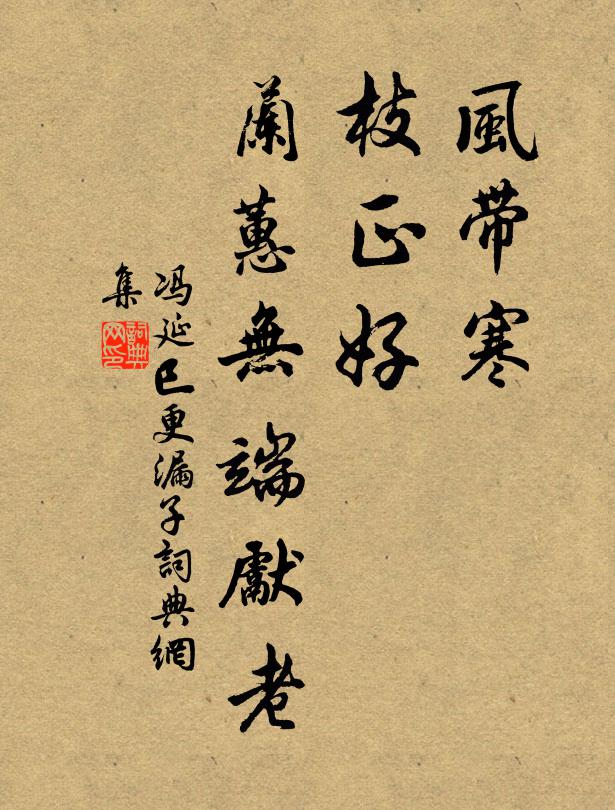 風帶寒
枝正好
蘭蕙無端獻老
冯延巳更漏子詞典網
集
詞典网印